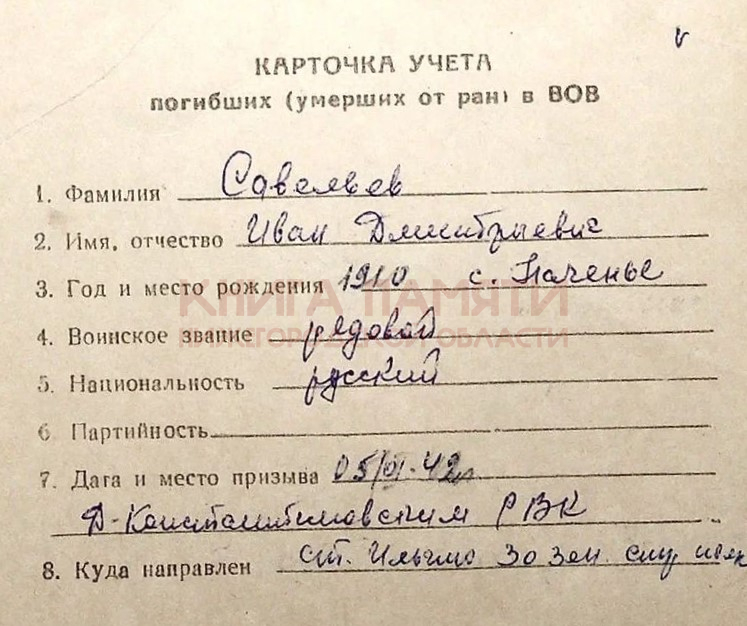 КАРТОЧКА УЧЕТА
погибших (умерших от ран) в ВОВ
1. Фамилия Савельев
2. Имя, отчество Иван Дмитриевич
3. Год и место рождения 1910 с. Паченье
КНИГА ПАМЯТИ
4. Воинское звание рядовой
НИЖЕГОРОДСКОЙ ОБЛАСТИ
5. Национальность русский
6 Партийность
7. Дата и место призыва 05/VI-42г
Д-Константиновским РВК
8. Куда направлен ст. Ильино 30 зен.